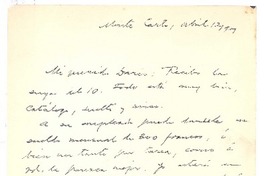 Monte Carlo, Abril 12/909
Mi querido Darío: Recibo la
suya del 10. Todo está muy bien,
Catálogo, y
A su empleado puede un
sueldo mensual de 200 francos, ó
bien un tanto por tarea, como á
Vd. le parezca mejor. Yo estaré en